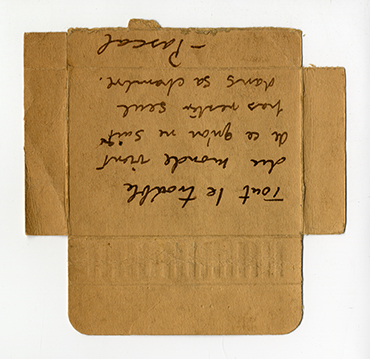 Tout le trouble
du monde vient
de ce qu'on ne sait
pas rester seul
dans sa chambre.
– Pascal